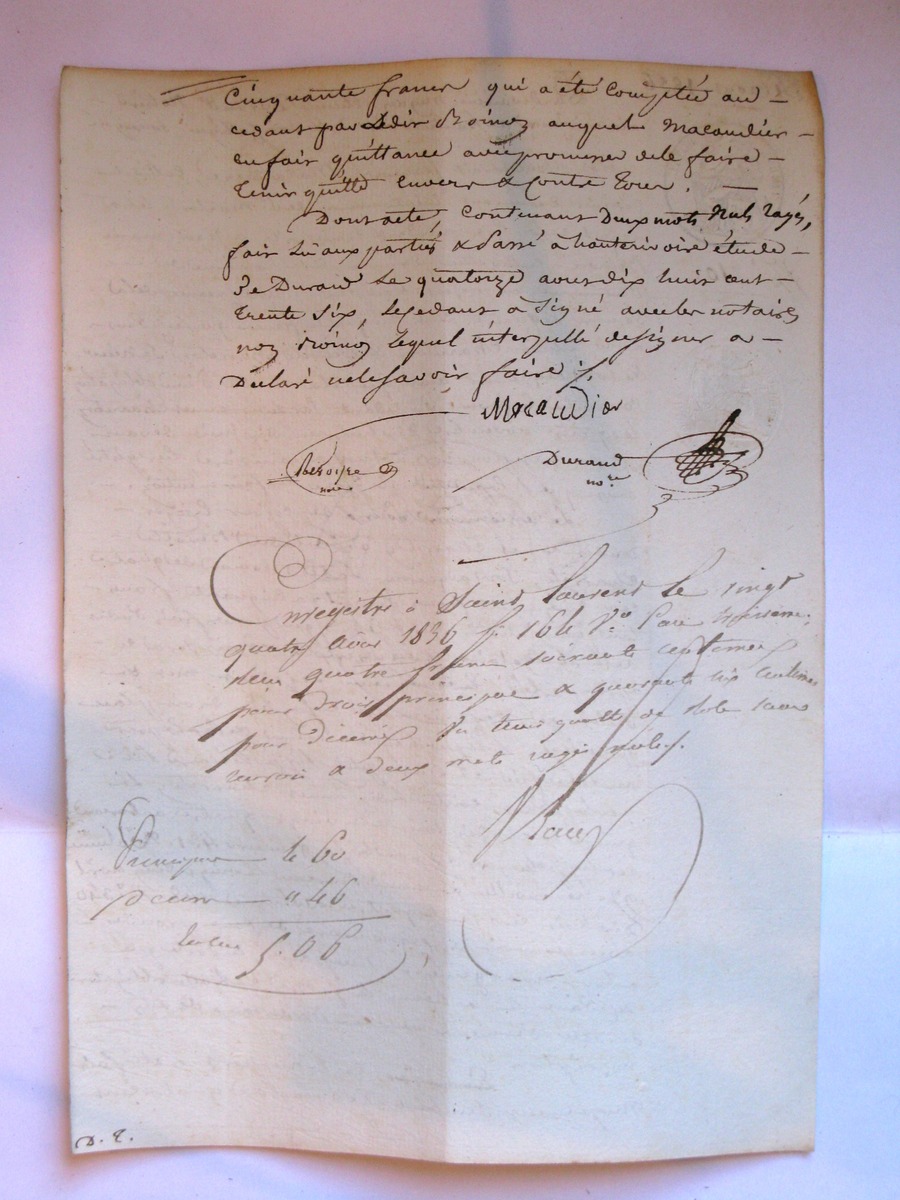 Cinquante francs qui a été Comptée au
cédant par Ledit Boinoz auquel Macaudier
en fait quittance avec promesse de le faire
tenir quitte envers & contre tous.
Dont acte, Contenant Deux mots Nuls rayés,
fait lu aux parties & Passé à hauterivoire étude
De Durand Le quatorze aout dix huit cent
trente six, Le Cedant à Signé avec les notaires
non Boinoz lequel interpellé de signer a
Déclaré ne le savoir faire ./.
Macaudier
nore
Durand
nore
Enregistré à Saint Laurent le vingt
quatre aout 1836 f° 164 Vo Case troisieme,
quatre francs soixante centimes
pour droit principal & quarante six centimes
pour Décime
& deux mots rayés nuls ./.
Principal 4 60
Décime " 46
5. 06
D. T.